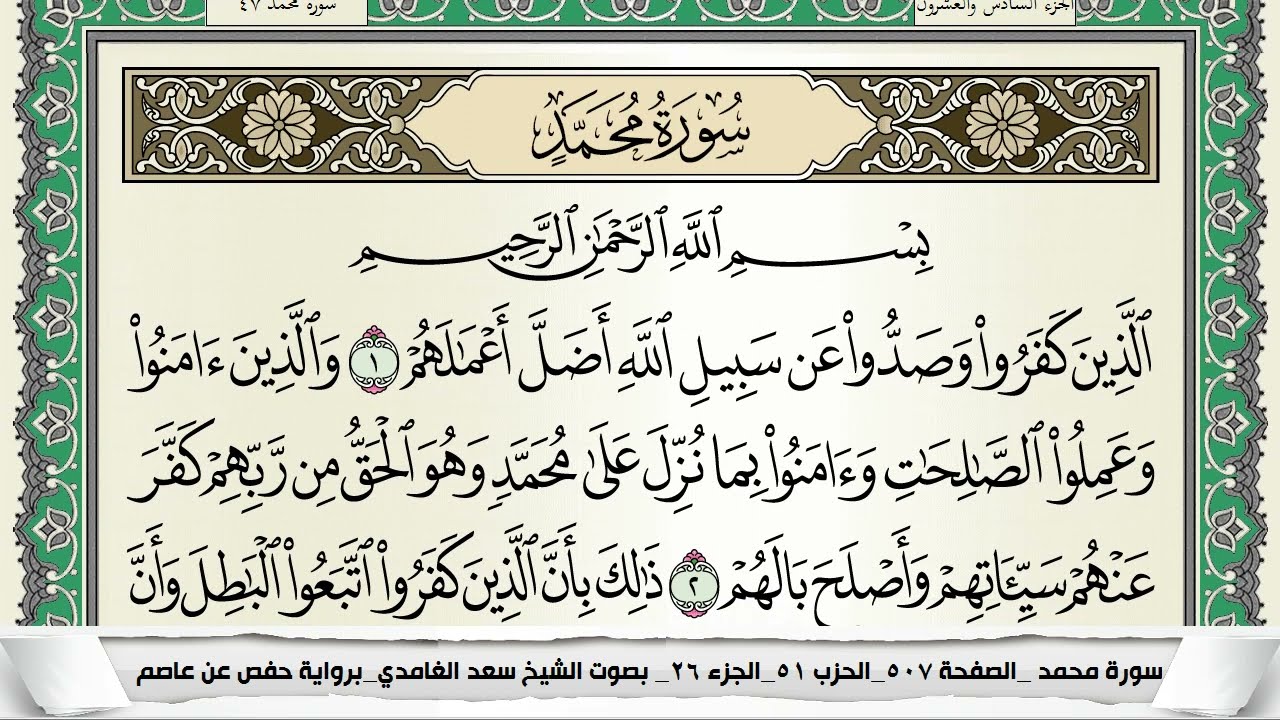 الجزء السادس والعشرون
سورة محمد ٤٧
سُورَةُ مُحَمَّدٍ
بِسْمِ ٱللَّهِ ٱلرَّحْمَٰنِ ٱلرَّحِيمِ
ٱلَّذِينَ كَفَرُوا۟ وَصَدُّوا۟ عَن سَبِيلِ ٱللَّهِ أَضَلَّ أَعْمَٰلَهُمْ ١ وَٱلَّذِينَ ءَامَنُوا۟
وَعَمِلُوا۟ ٱلصَّٰلِحَٰتِ وَءَامَنُوا۟ بِمَا نُزِّلَ عَلَىٰ مُحَمَّدٍ وَهُوَ ٱلْحَقُّ مِن رَّبِّهِمْ كَفَّرَ
عَنْهُمْ سَيِّـَٔاتِهِمْ وَأَصْلَحَ بَالَهُمْ ٢ ذَٰلِكَ بِأَنَّ ٱلَّذِينَ كَفَرُوا۟ ٱتَّبَعُوا۟ ٱلْبَٰطِلَ وَأَنَّ
سورة محمد _الصفحة ٥٠٧_الحزب ٥١_الجزء ٢٦_ بصوت الشيخ سعد الغامدي_برواية حفص عن عاصم